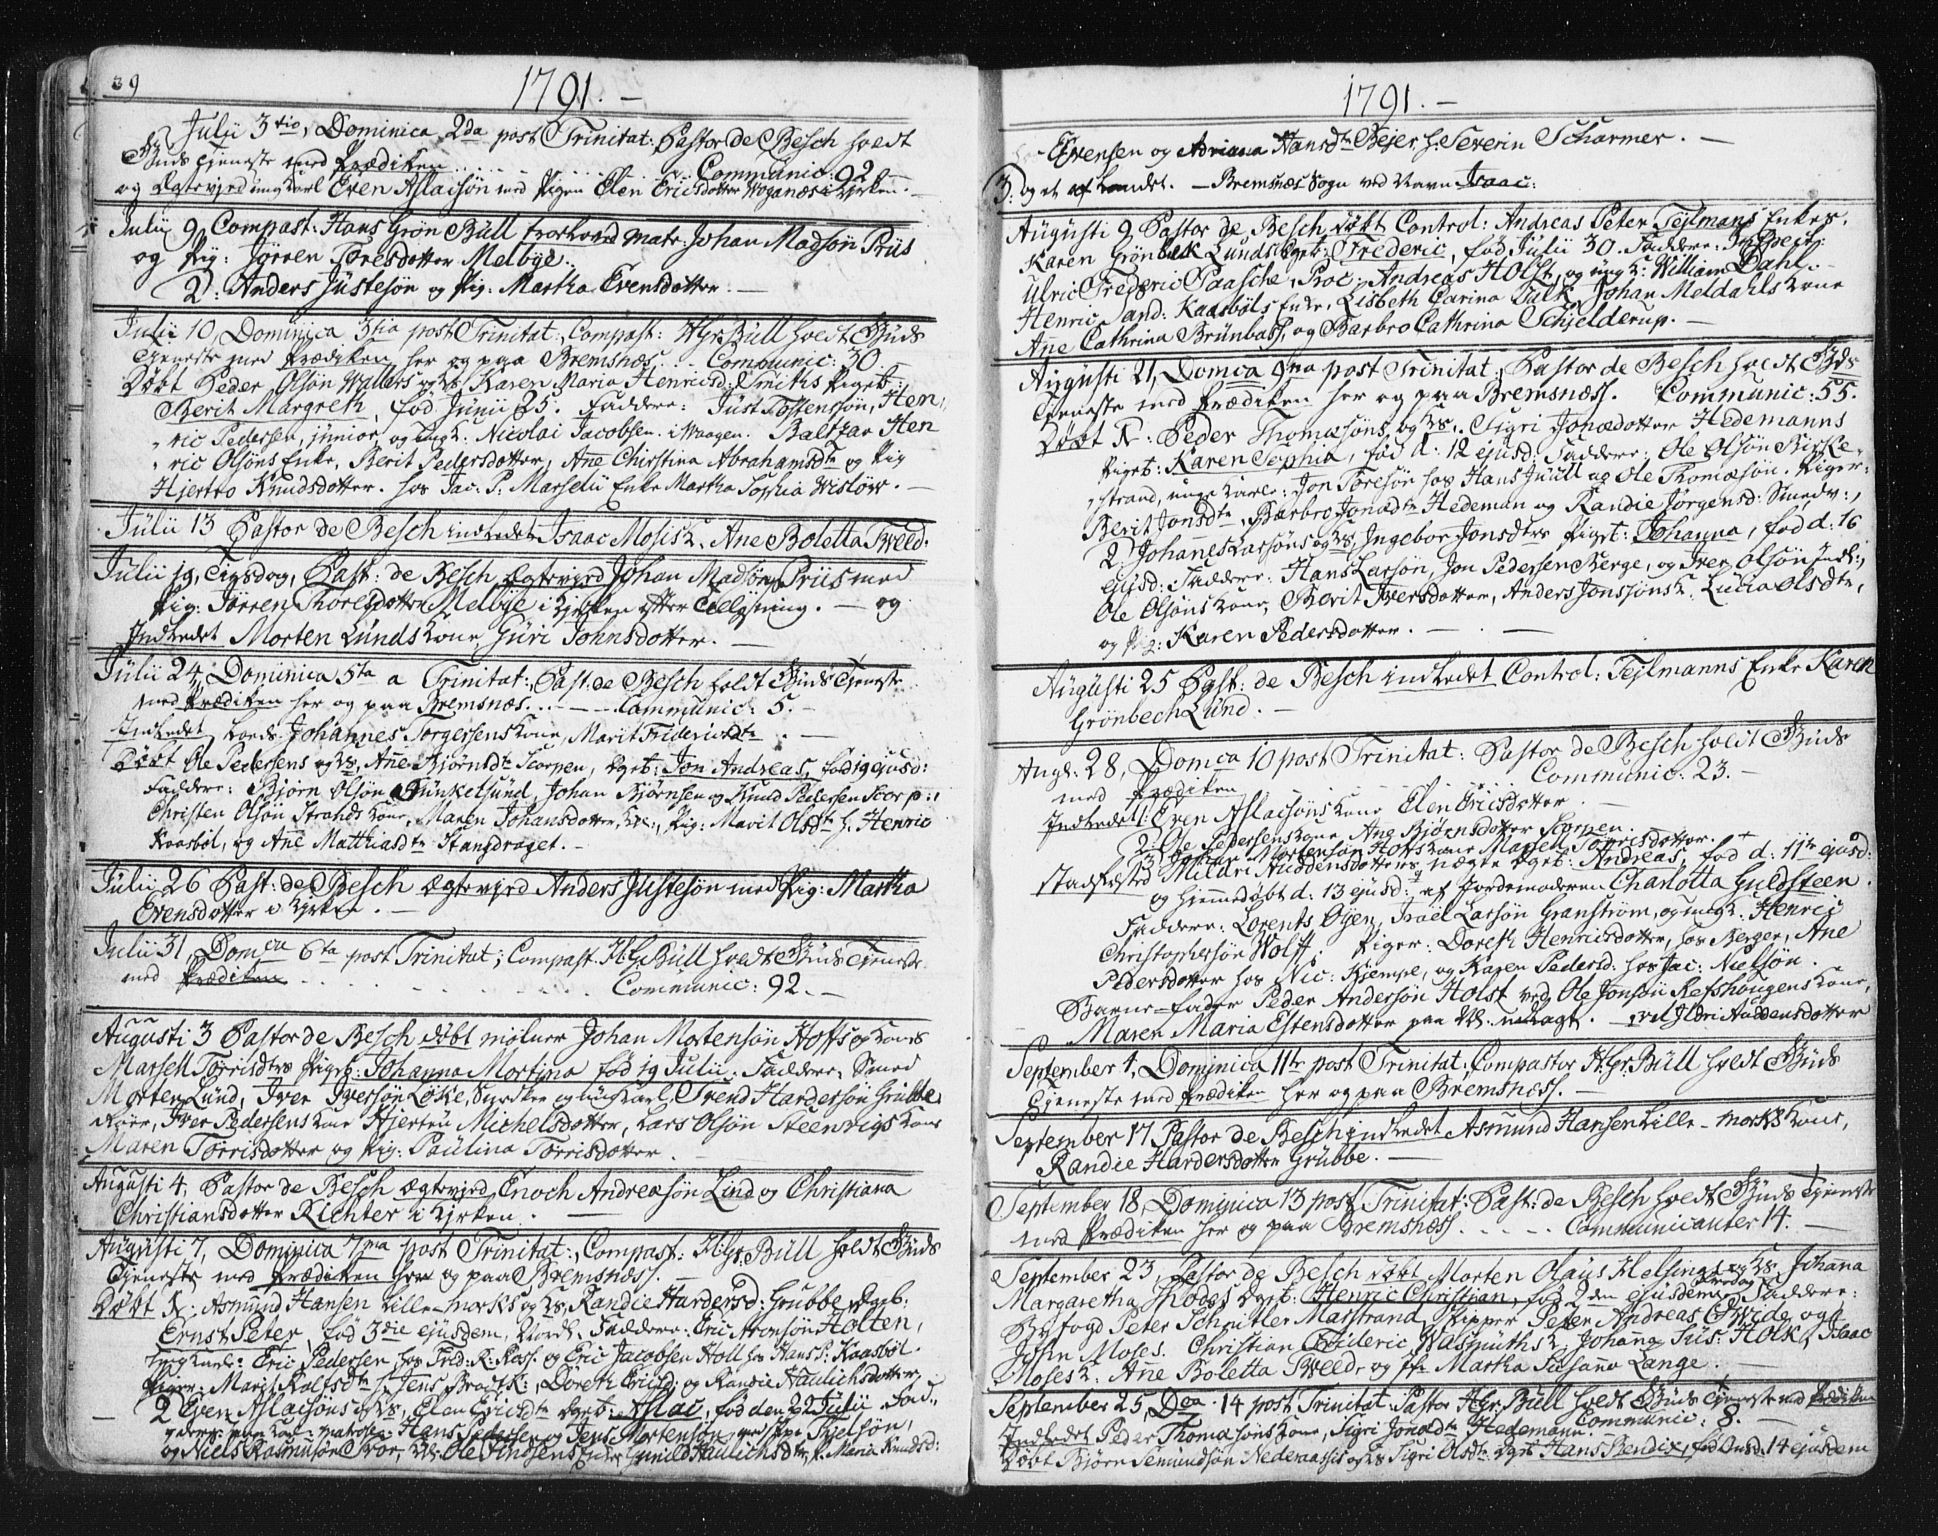 39
1791. —
Julii 3tio, Dominica 2da post Trinitat: Pastor de Besch holdt
Guds Tjeneste med Prædiken . . . . . Communic: 92
og Egtevied ungkarl Even Aslacsøn med Pigen Elen Ericsdotter i Kirken. —
Julii 9, Compast: Hans Grøn Büll trolovid matr: Johan Madsøn Prüs
og Pig: Jørren Toresdotter Melbye.
2: Anders Jüstesøn og Pig: Martha Evensdotter. —
Julii 10, Dominica 3tia post Trinitat:, Compast: H Gr: Büll holdt Guds
Tjeneste med Prædiken her og paa Bremsnæs . . Communic: 30
Døbt Peder Olsøn Wullers og Hs Karen Maria Henricsd: Smiths Piget:
Berit Margreth, fød Junii 25. Faddere: Jüst Tostensøn, Hen,,
,, ric Pedersen, junior, og ungk: Nicolai Jacobsen i Waagen. Baltzar Hen
,, ric Olsøns Enke, Berit Pedersdotter, Ane Christina Abrahamsdtr og Pig
Hjertro Knudsdotter. hos Jac: P: Marselii Enke Martha Sophia Wisløw. —
Julii 13 Pastor de Besch indledet Isaac Mosis K. Ane Boletta Tweed.
Julii 19, Tirsdag, Past: de Besch Egtevied Johan Madsøn Prüs med
Pig: Jørren Thoresdotter Melbye i Kirken efter Tillysning. — og
Indledet Morten Lunds Kone Güri Johnsdotter. —
Julii 24, Dominica 5ta a Trinitat:, Past: de Besch holdt Guds Tjeneste
med Prædiken her og paa Bremsnæs. . . — — Communic: 5. —
Indledet Johannes Torgersens Kone, Marit Fridericsdtr
Døbt Ole Pedersens og Hs, Ane Bjørnsdtr Scorpen, Dget: Jon Andreas, fød 19 ejusd:
Faddere: Bjørn Olsøn Dünkelsund, Johan Bjørnsen og Knud Pedersen Scorp:,
Christen Olsøn Strands Kone, Maren Johansdotter, Pig: Marit Olsdtr h. Henric
Kaasbøl, og Ane Matthiasdtr Stangdraget. —
Julii 26 Past: de Besch Egtevied Anders Jüstesøn med Pig: Martha
Evensdotter i Kirken. —
Julii 31, Domca 6ta post Trinitat; Compast H G Büll holdt Guds Tjeneste
med Prædiken . . . . . . . . . Communic: 92. —
Augusti 3 Pastor de Besch døbt mølner Johan Mortensøn Hoffs og Hs
Marsell Torrisdtrs Piget: Johanna Mortina fød 19 Julii. Faddere: Smed
Morten Lünd, Iver Iversøn Løke, og ungkarl Trend Hardersøn Grübbe
Iver Pedersens Kone Hjertru Michelsdotter, Lars Olsøn Steenvigs Kone
Maren Torrisdotter og Pig: Paulina Torrisdotter. —
Augusti 4, Pastor de Besch Egtevied Enoch Andreasøn Lind og Christiana
Christiansdotter Richter i Kirken. —
Augusti 7, Dominica 7ma post Trinitat:, Compast: H Gr: Büll holdt Guds
Tjeneste med Prædiken her og paa Bremsnæss. —
Døbt N: Asmund Hansen Lille-morks og Hs, Randie Hardersd: Grubbe Dget:
Ernst Peter, fød 3die ejusdem, Faddere: Eric Aronsøn Holten,
Ungkarle: Eric Pedersen hos Frid: R: Ross. og Eric Jacobsen Holl hos Hans P: Kaasbøl.
Piger: Marit Rolfsdtr, Jens Brodtk:, Doreth Ericsd: og Randie Haulichsdotter.
— 2 Even Aslacsøns og Hs, Elen Ericsdtr Dget: Aslac, fød den 22 Julii Fad,,
,, dere: matros: Hans Pedersen og Jens Mortensøn Skjelsøn,
og Niels Rasmusøn, Ole Findsens Enke Gunild Haulichsdtr, P. Maria Knudsd:
1791. —
Evensen og Adriana Hansdtr Bejer, h. Severin Scharmer. —
3. og et af Landet. — Bremsnæs Sogn ved Navn Isaac:
Augusti 9 Pastor de Besch døbt Control: Andreas Peter Tejlmans Enkes.
Karen Grønbek Lunds Dget: Frederic, fød Julii 30. Faddere: Inspect:
Ulric Frederic Paasche, Proc: Andreas Holst, og ungk: William Dahl.
Henric Sand: Kaasbøls Enke, Lisbeth Carina Falk, Johan Meldahls Kone
Ane Cathrina Brünbass, og Barbro Cathrina Schjelderup. —
Augusti 21, Domca 9na post Trinitat:, Pastor de Besch holdt Gds
Tjeneste med Prædiken her og paa Bremsnæss. Communic: 55.
Døbt N: Peder Thomæsøns og Hs. Sigri Jonædotter Hedemanns
Piget: Karen Sophia, fød d: 12 ejusd: Faddere: Ole Olsøn Kirke-
,, strand, unge karle: Jon Toresøn hos Hans Juüll og Ole Thomæsøn. Piger:
Berit Jonsdtr, Barbro Jonædtr Hedeman og Randie Jørgensd: Smedv:,
2 Johannes Larsøns og Hs, Ingebor Jonsdtrs Piget: Johanna, fød d: 16
ejusd: Faddere: Hans Larsøn, Jon Pedersen Berge, og Iver Olsøn Indl:,
Ole Olsøns Kone, Berit Iversdotter, Anders Jonssøns K. Lucia Olsdtr,
og Pig: Karen Pedersdotter. — —
Augusti 25 Past: de Besch indledet Control: Tejlmanns Enke Karen
Grønbech Lünd. —
Augl: 28, Domca 10 post Trinitat: Pastor de Besch holdt Guds
med Prædiken . . . . . . Communic: 23. —
Indledet 1. Even Aslacsøns Kone Elen Ericsdotter —
2 Ole Pedersens Kone Ane Bjørnsdotter Scorpen.
3 Johan Mortensøn Hoffs Kone Marsell Torrisdotter. +
Stadfæsted Mildri Auddensdotters uægte Dget: Andreas, fød d: 11te ejusd:
og hjemmedøbt d. 13 ejusd: af Jordemoderen Charlotta Guldsteen.
Faddere: Lorents Øyen, Israel Larsøn Granstrøm, og ungk: Henric
Christophersøn Wolff. Piger: Doreth Henricsdotter, hos Berger, Ane
Pedersdotter hos Nic: Kjempe, og Karen Pedersd: hos Jac: Nielsøn.
Barne-Fader Peder Andersøn Holst ved Ole Jonsøn Refshougens Kone,
Maren Maria Estensdotter paa udlagt. — ved Ildri Auddensdotter
September 4, Dominica 11te post Trinitat: Compastor H. Gr. Büll holdt Guds
Tjeneste med Prædiken her og paa Bremsnæss. —
September 17 Pastor de Besch indledet Asmund Hansen Lille-morks Kone,
Randie Hardersdotter Grübbe. —
September 18, Dominica 13 post Trinitat: Past: de Besch holdt Guds Tjeneste
med Prædiken her og paa Bremsnæss. . . . . Communicanter 14. —
September 23, Pastor de Besch døbt Morten Olaus Helsings og Hs Johanna
Margaretha Thodes Dget: Henric Christian, fød 9den ejusdem, Fredag Faddere:
Byfogd Peter Schnitler Matstrand, Skipper Peter Andreas Qwide, og
John Moses. Christian Frideric Wasmuths K Johanna Jüs: Holk, Isaac
Moses K: Ane Boletta Tweed, og Martha Susanna Lange.
September 25, Dca 14 post Trinitat. Pastor H Gr. Büll holdt Guds Tjeneste med Prædiken
Indledet Peder Thomæsøns Kone, Sigri Jonædtr Hedemann. Communic: 8. —
Døbt Bjørn Semundsøn Nederaassis og Hs Sigri Olsdtr Dget Hans Bendix, fød Onsd: 14 ejusdem